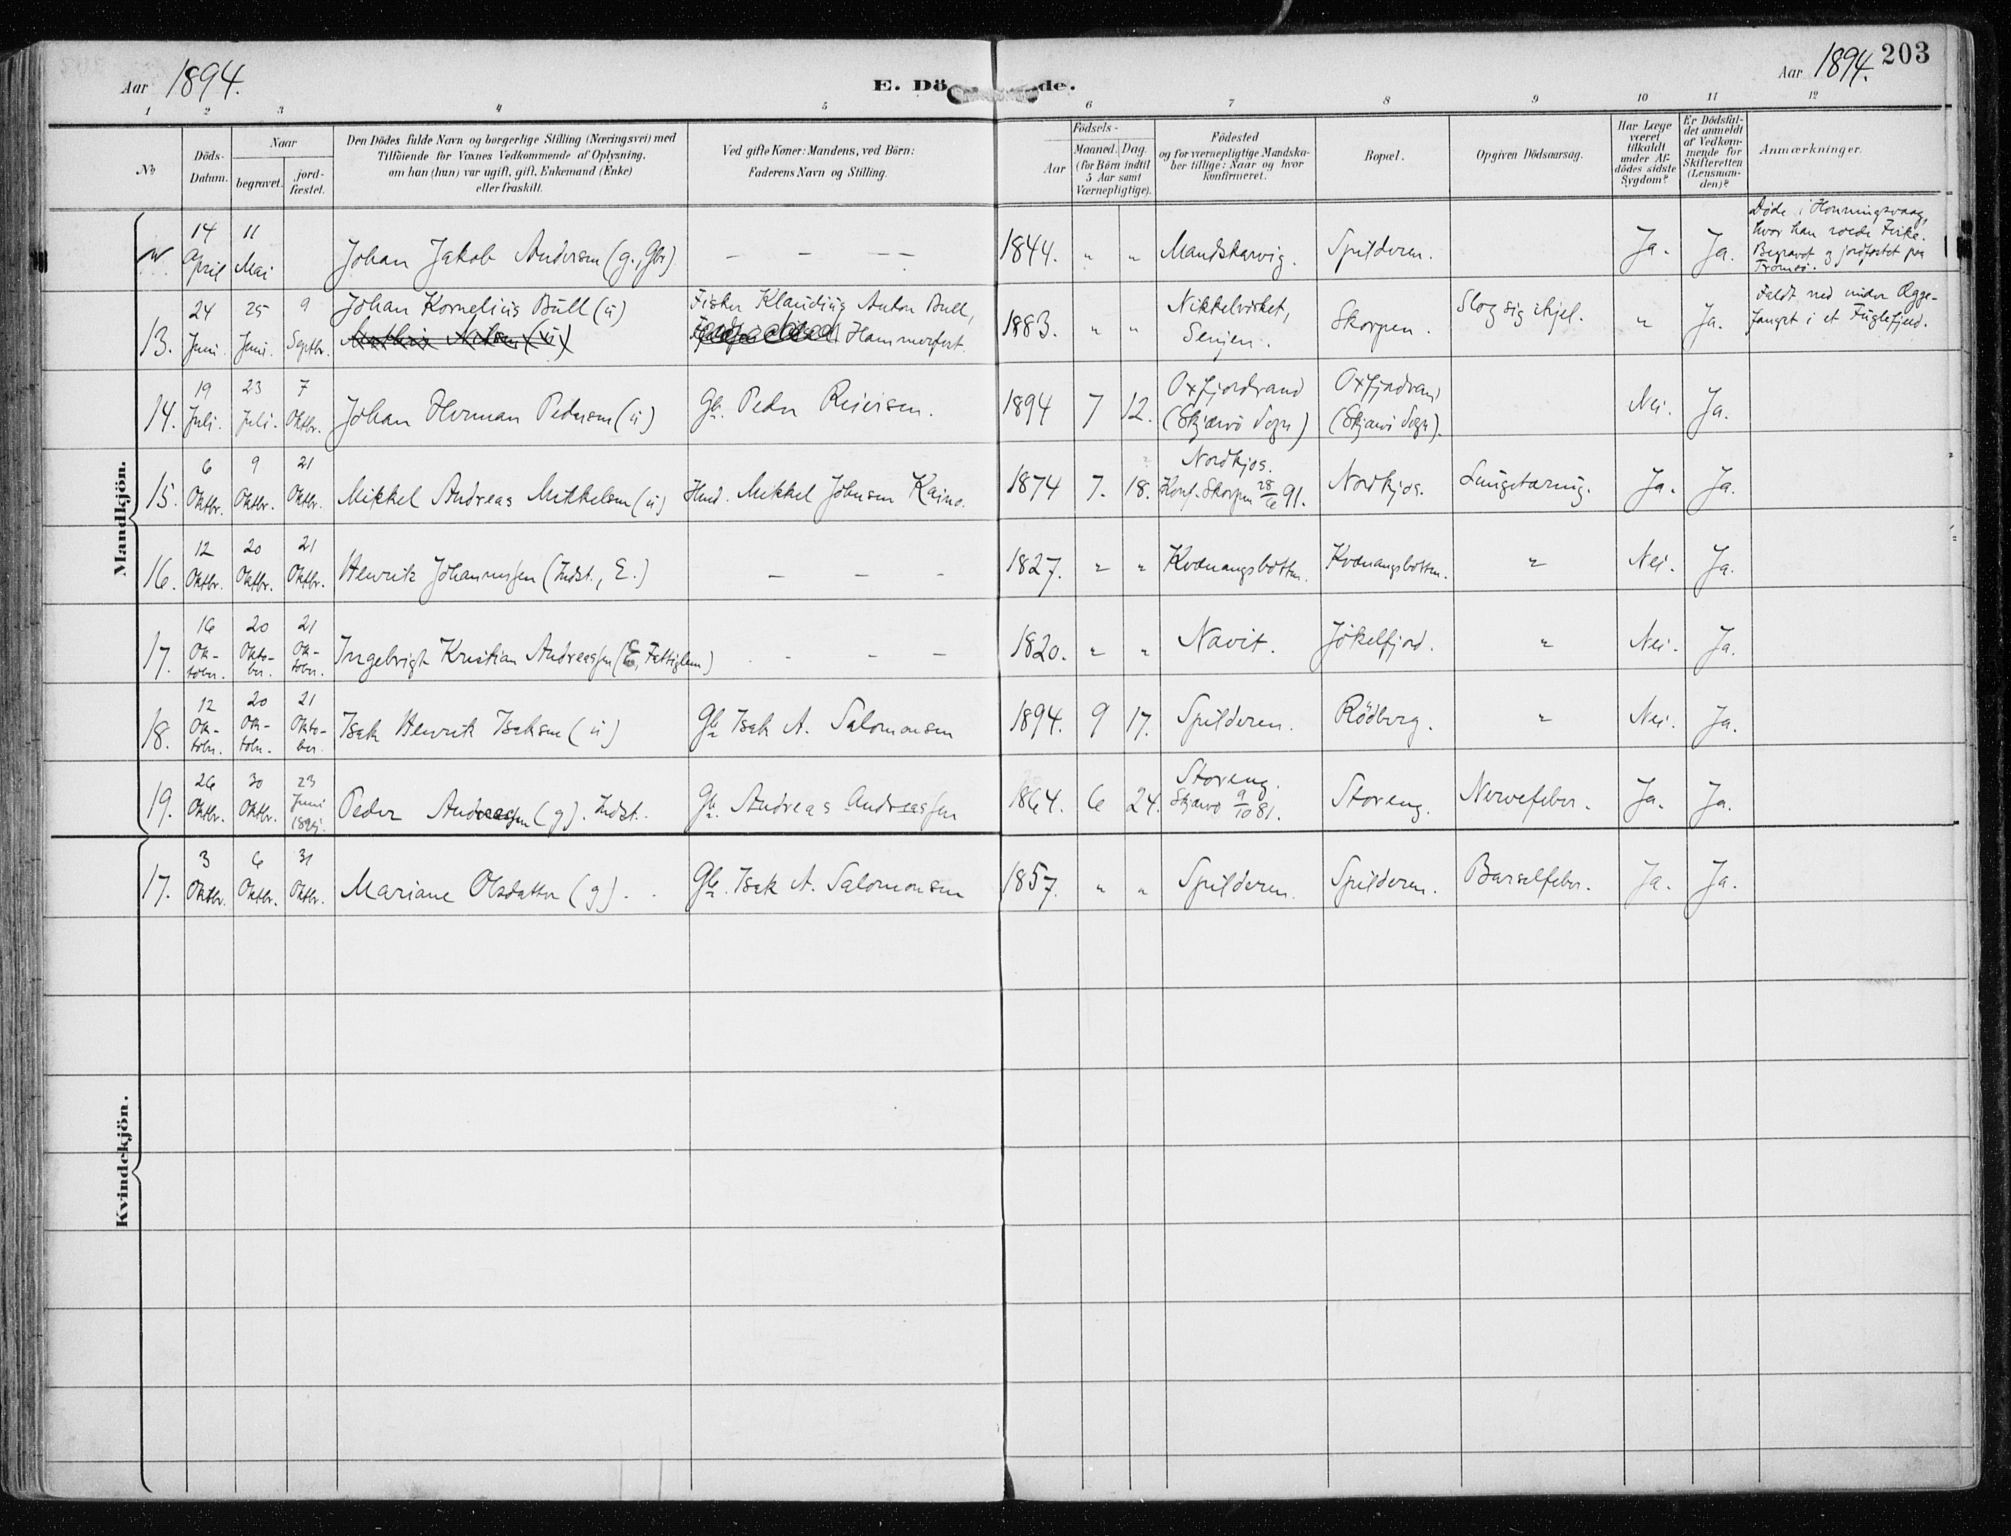 Aar 1894.
E. Dö de.
Aar 1894. 203
1 2 3 4 5 6 7 8 9 10 11 12
No
Döds-
Datum.
Naar
begravet.
jord-
fæstet.
Den Dödes fulde Navn og borgerlige Stilling (Næringsvei) med
Tilföiende for Voxnes Vedkommende af Oplysning,
om han (hun) var ugift, gift, Enkemand (Enke)
eller fraskilt.
Ved gifte Koner: Mandens, ved Börn:
Faderens Navn og Stilling.
Födsels-
Aar
Maaned. Dag.
(for Börn indtil
5 Aar samt
Værnepligtige).
Födested
og for værnepligtige Mandska-
ber tillige: Naar og hvor
konfirmeret.
Bopæl.
Opgiven Dödsaarsag.
Har Læge
været
tilkaldt
under Af-
dödes sidste
Sygdom?
Er Dödsfal-
det anmeldt
af Vedkom-
mende for
Skifteretten
(Lensman-
den)?
Anmærkninger.
Mandkjön.
14 April 11 Mai Johan Jakob Andersen (g., Gbr) – – – – 1844. " " Mandskarvig. Spilderen. Ja. Ja.
Døde i Honningsvaag,
hvor han roede Fiske.
Begravet og jordfæstet paa
Tromsø.
13. 24 Juni. 25 Juni. 9 Septbr. Johan Kornelius Bull (ú) Fisker Klaudius Anton Bull,
Hammerfest.
1883. " " Nikkelværket,
Senjen. Skorpen. Slog sig ihjel. " Ja.
Faldt ned under Ægge-
fangst i et Fuglefjeld.
14. 19 Juli. 23 Juli. 7 Oktbr. Johan Herman Pedersen (ú) Gb. Peder Reiersen. 1894 7 12. Oxfjordvand
(Skjærvö Sogn) Oxfjordvand
(Skjærvö Sogn). Nei. Ja.
15. 6 Oktbr. 9 Oktbr. 21 Oktbr. Mikkel Andreas Mikkelsen (ú) Husd. Mikkel Johnsen Kaino. 1874 7. 18. Nordkjos.
Konf. Skorpen 28/6 91. Nordkjos. Lungetæring. Ja. Ja.
16. 12 Oktbr. 20 Oktbr. 21 Oktbr. Henrik Johannessen (Indst., E.) – – – 1827. " " Kvænangsbotten. Kvænangsbotten. " Nei. Ja.
17. 16 Ok-
tober. 20 Okto-
ber. 21 Ok-
tober. Ingebrigt Kristian Andreassen (E, Fattiglem) – – – 1820. " " Navit. Jökelfjord. " Nei. Ja.
18. 12 Ok-
tober. 20 Ok-
tober. 21 Okto-
ber. Isak Henrik Isaksen (ú) Gb. Isak A. Salomonsen 1894. 9 17. Spilderen. Rödberg. " Nei. Ja.
19. 26 Oktbr. 30 Oktbr. 23 Juni 1895. Peder Andreassen (g). Indst. Gb. Andreas Andreassen 1864. 6 24. Storeng.
Skjærvö 9/10 81. Storeng. Nervefeber. Ja. Ja.
Kvindekjön.
17. 3 Oktbr. 6 Oktbr. 31 Oktbr. Mariane Olsdatter (g). Gb. Isak A. Salomonsen 1857. " " Spilderen. Spilderen. Barselfeber. Ja. Ja.